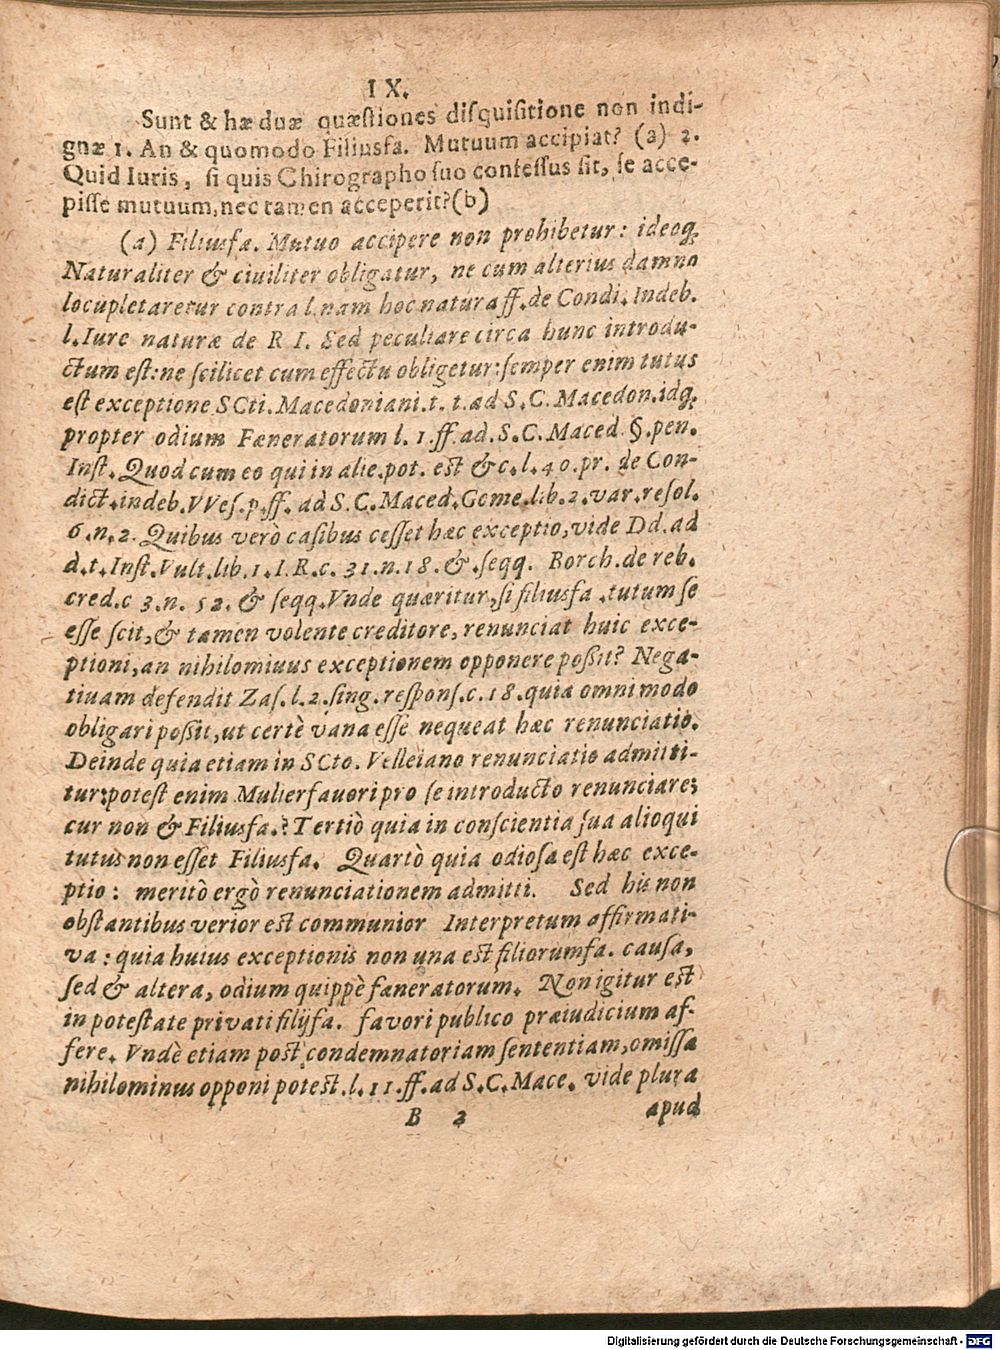 IX.
Sunt & hæ duæ quæstiones disquisitione non indi-
gnæ 1. An & quomodo Filiusfa. Mutuum accipiat? (a) 2.
Quid Iuris, si quis Chirographo suo confessus sit, se acce-
pisse mutuum, nec tamen acceperit? (b)
(a) Filiusfa. Mutuo accipere non prohibetur: ideoq́;
Naturaliter & ciuiliter obligatur, ne cum alterius damno
locupletaretur contra l. nam hoc natura ff. de Condi. Indeb.
l. Iure naturæ de R I. Sed peculiare circa hunc introdu-
ctum est: ne scilicet cum effectu obligetur: semper enim tutus
est exceptione SCti. Macedoniani. t. t. ad S. C. Macedon. idq́;
propter odium Fæneratorum l. 1. ff. ad. S. C. Maced. §. pen.
Inst. Quod cum eo qui in alie. pot. est &c. l. 40. pr. de Con-
dict. indeb. VVes. p. ff. ad S. C. Maced. Gome. lib. 2. var. resol.
6. n. 2. Quibus verò casibus cesset hæc exceptio, vide Dd. ad
d. t. Inst. Vult. lib. 1. I. R. c. 31. n. 18. &. seqq. Borch. de reb.
cred. c 3. n. 52. & seqq. Vnde quæritur, si filiusfa. tutum se
esse scit, & tamen volente creditore, renunciat huic exce-
ptioni, an nihilomiuus exceptionem opponere poßit? Nega-
tiuam defendit Zas. l. 2. sing. respons. c. 18. quia omni modo
obligari poßit, ut certè vana esse nequeat hæc renunciatio.
Deinde quia etiam in SCto. Velleiano renunciatio admitti-
tur; potest enim Mulier fauori pro se introducto renunciare;
cur non & Filiusfa.? Tertiò quia in conscientia sua alioqui
tutus non esset Filiusfa. Quartò quia odiosa est hæc exce-
ptio: meritò ergò renunciationem admitti. Sed his non
obstantibus verior est communior Interpretum affirmati-
va: quia huius exceptionis non una est filiorumfa. causa,
sed & altera, odium quippè fæneratorum. Non igitur est
in potestate privati filijfa. favori publico præiudicium af-
fere. Vndè etiam post condemnatoriam sententiam, omissa
nihilominus opponi potest. l. 11. ff. ad S. C. Mace. vide plura
B 2 apud
Digitalisierung gefördert durch die Deutsche Forschungsgemeinschaft - DFG